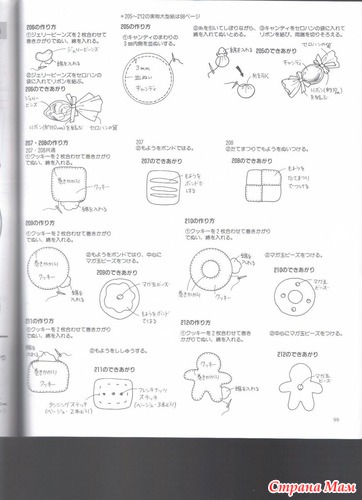 *205～212の実物大型紙は98ページ
206の作り方
①ジェリービーンズを2枚合わせて
巻きかがりでぬい、綿を入れる。
ジェリービーンズ
綿を入れる
②ジェリービーンズをセロハンの
袋に入れてリボンを結ぶ。
206のできあがり
ジェリー
ビーンズ
セロハンの袋
205の作り方
①キャンディをまわりの
3㎜内側を並ぬいする。
3mm
並ぬい
キャンディ
②糸を引いてしぼりながら、
綿を入れてぬいとめる。
綿を入れる
③キャンディをセロハンの袋に入れて
リボンを結び、両端を切りそろえる。
205のできあがり
キャンディ
セロハンの袋
207・208の作り方
207・208共通
①クッキーを2枚合わせて巻きかがり
でぬい、綿を入れる。
巻きかがり
クッキー
綿を入れる
207
②もようをボンドではる。
207のできあがり
もようを
ボンドで
はる
208
②たてまつりでもようをぬいつける。
208のできあがり
もようを
たてまつり
でつける
209の作り方
①クッキーを2枚合わせて巻きかがり
でぬい、綿を入れる。
巻きかがり
クッキー
綿を
入れる
②もようをボンドではり、中心に
マガ玉ビーズをつける。
209のできあがり
マガ玉
ビーズ
もようをボンドではる
210の作り方
①クッキーを2枚合わせて巻きかがり
でぬい、綿を入れる。
巻きかがり
クッキー
綿を
入れる
②マガ玉ビーズをつける。
210のできあがり
マガ玉
ビーズ
211の作り方
①クッキーを2枚合わせて巻きかがり
でぬい、綿を入れる。
綿を
入れる
巻きかがり
クッキー
②もようをししゅうする。
211のできあがり
ランニング
ステッチ
(ベージュ・2本どり)
フレンチナッツ
ステッチ
(ベージュ・3本どり)
212の作り方
①クッキーを2枚合わせて巻き
かがりでぬい、綿を入れる。
クッキー
巻きかがり
綿を入れる
②中心にマガ玉ビーズをつける。
212のできあがり
マガ玉
ビーズ
99
Страна Мам